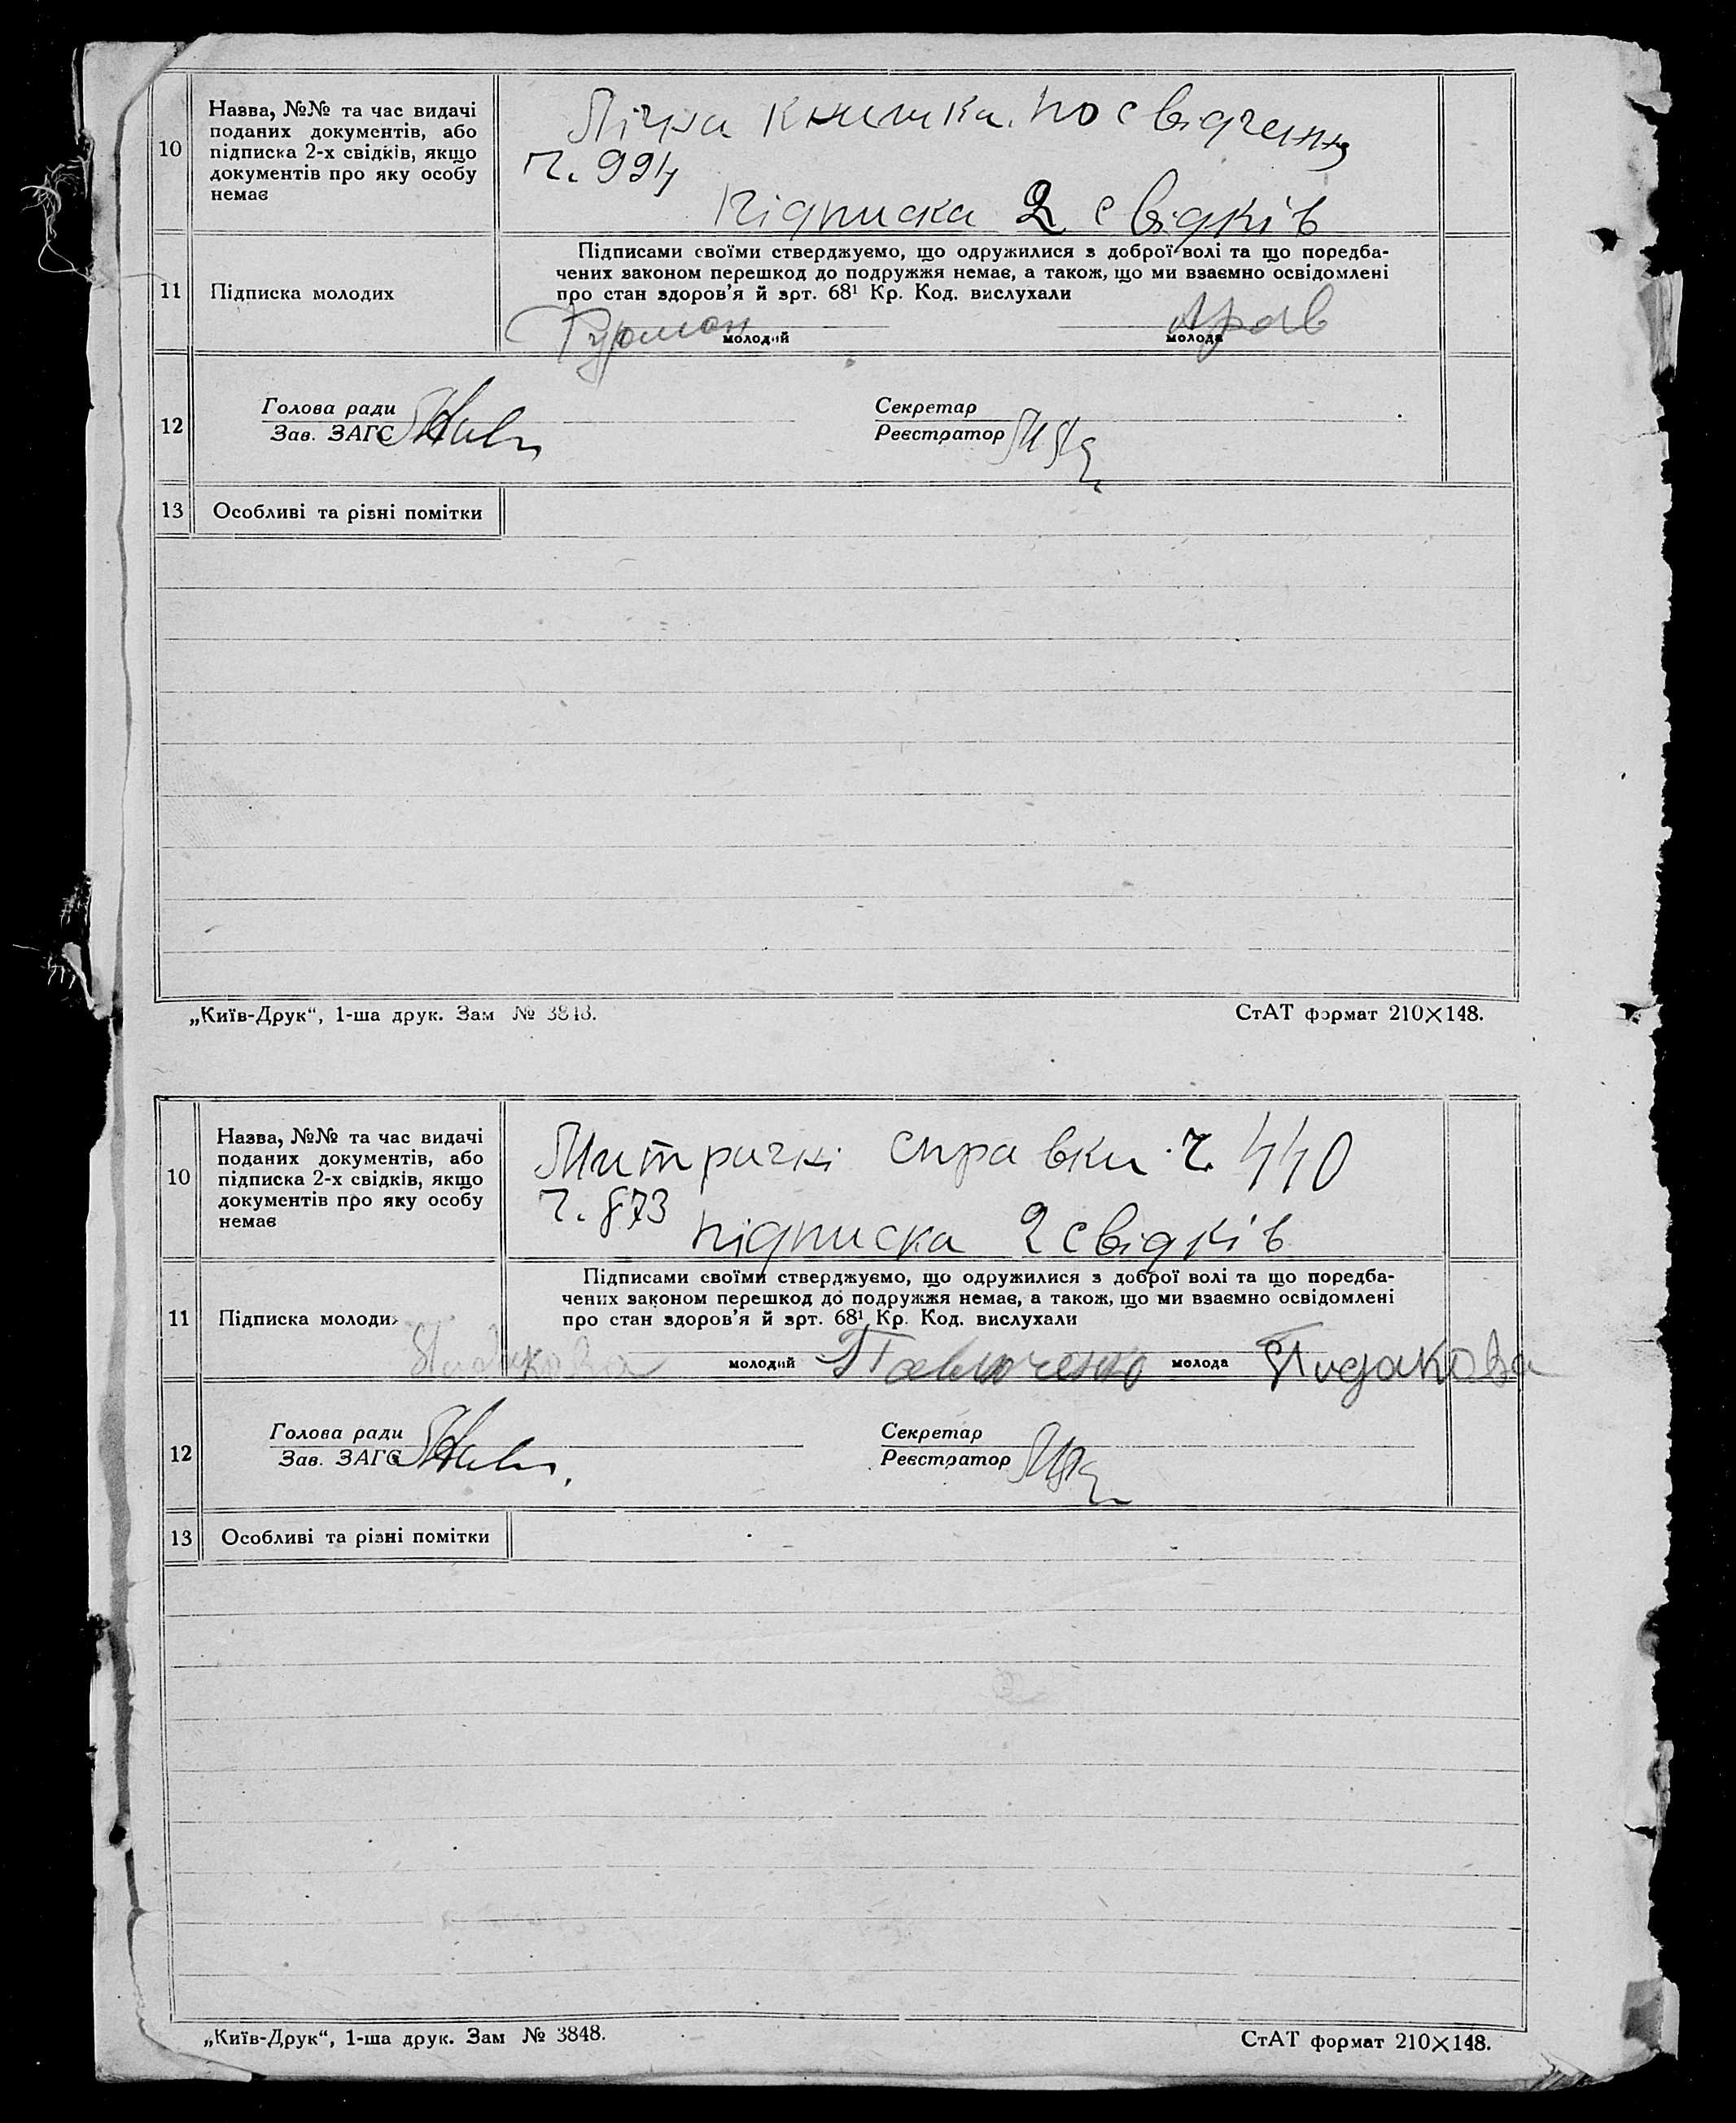 10
Назва, №№ та час видачі
поданих документів, або
підписка 2-х свідків, якщо
документів про яку особу
немає
Лічна книжка. посвідчення
ч. 994
підписка 2 свідків
11
Підписка молодих
Підписами своїми стверджуємо, що одружилися з доброї волі та що поредба-
чених законом перешкод до подружжя немає, а також, що ми взаємно освідомлені
про стан здоров'я й зрт. 68¹ Кр. Код. вислухали
молодий
молода
12
Голова ради
Зав. ЗАГС
Секретар
Реєстратор
13
Особливі та різні помітки
„Київ-Друк“, 1-ша друк. Зам № 3848.
СтАТ формат 210×148.
10
Назва, №№ та час видачі
поданих документів, або
підписка 2-х свідків, якщо
документів про яку особу
немає
Митричні справки ч. 440
ч. 873
підписка 2 свідків
11
Підписка молодих
Підписами своїми стверджуємо, що одружилися з доброї волі та що поредба-
чених законом перешкод до подружжя немає, а також, що ми взаємно освідомлені
про стан здоров'я й зрт. 68¹ Кр. Код. вислухали
молодий Павлюченко молода
12
Голова ради
Зав. ЗАГС
Секретар
Реєстратор
13
Особливі та різні помітки
„Київ-Друк“, 1-ша друк. Зам № 3848.
СтАТ формат 210×148.